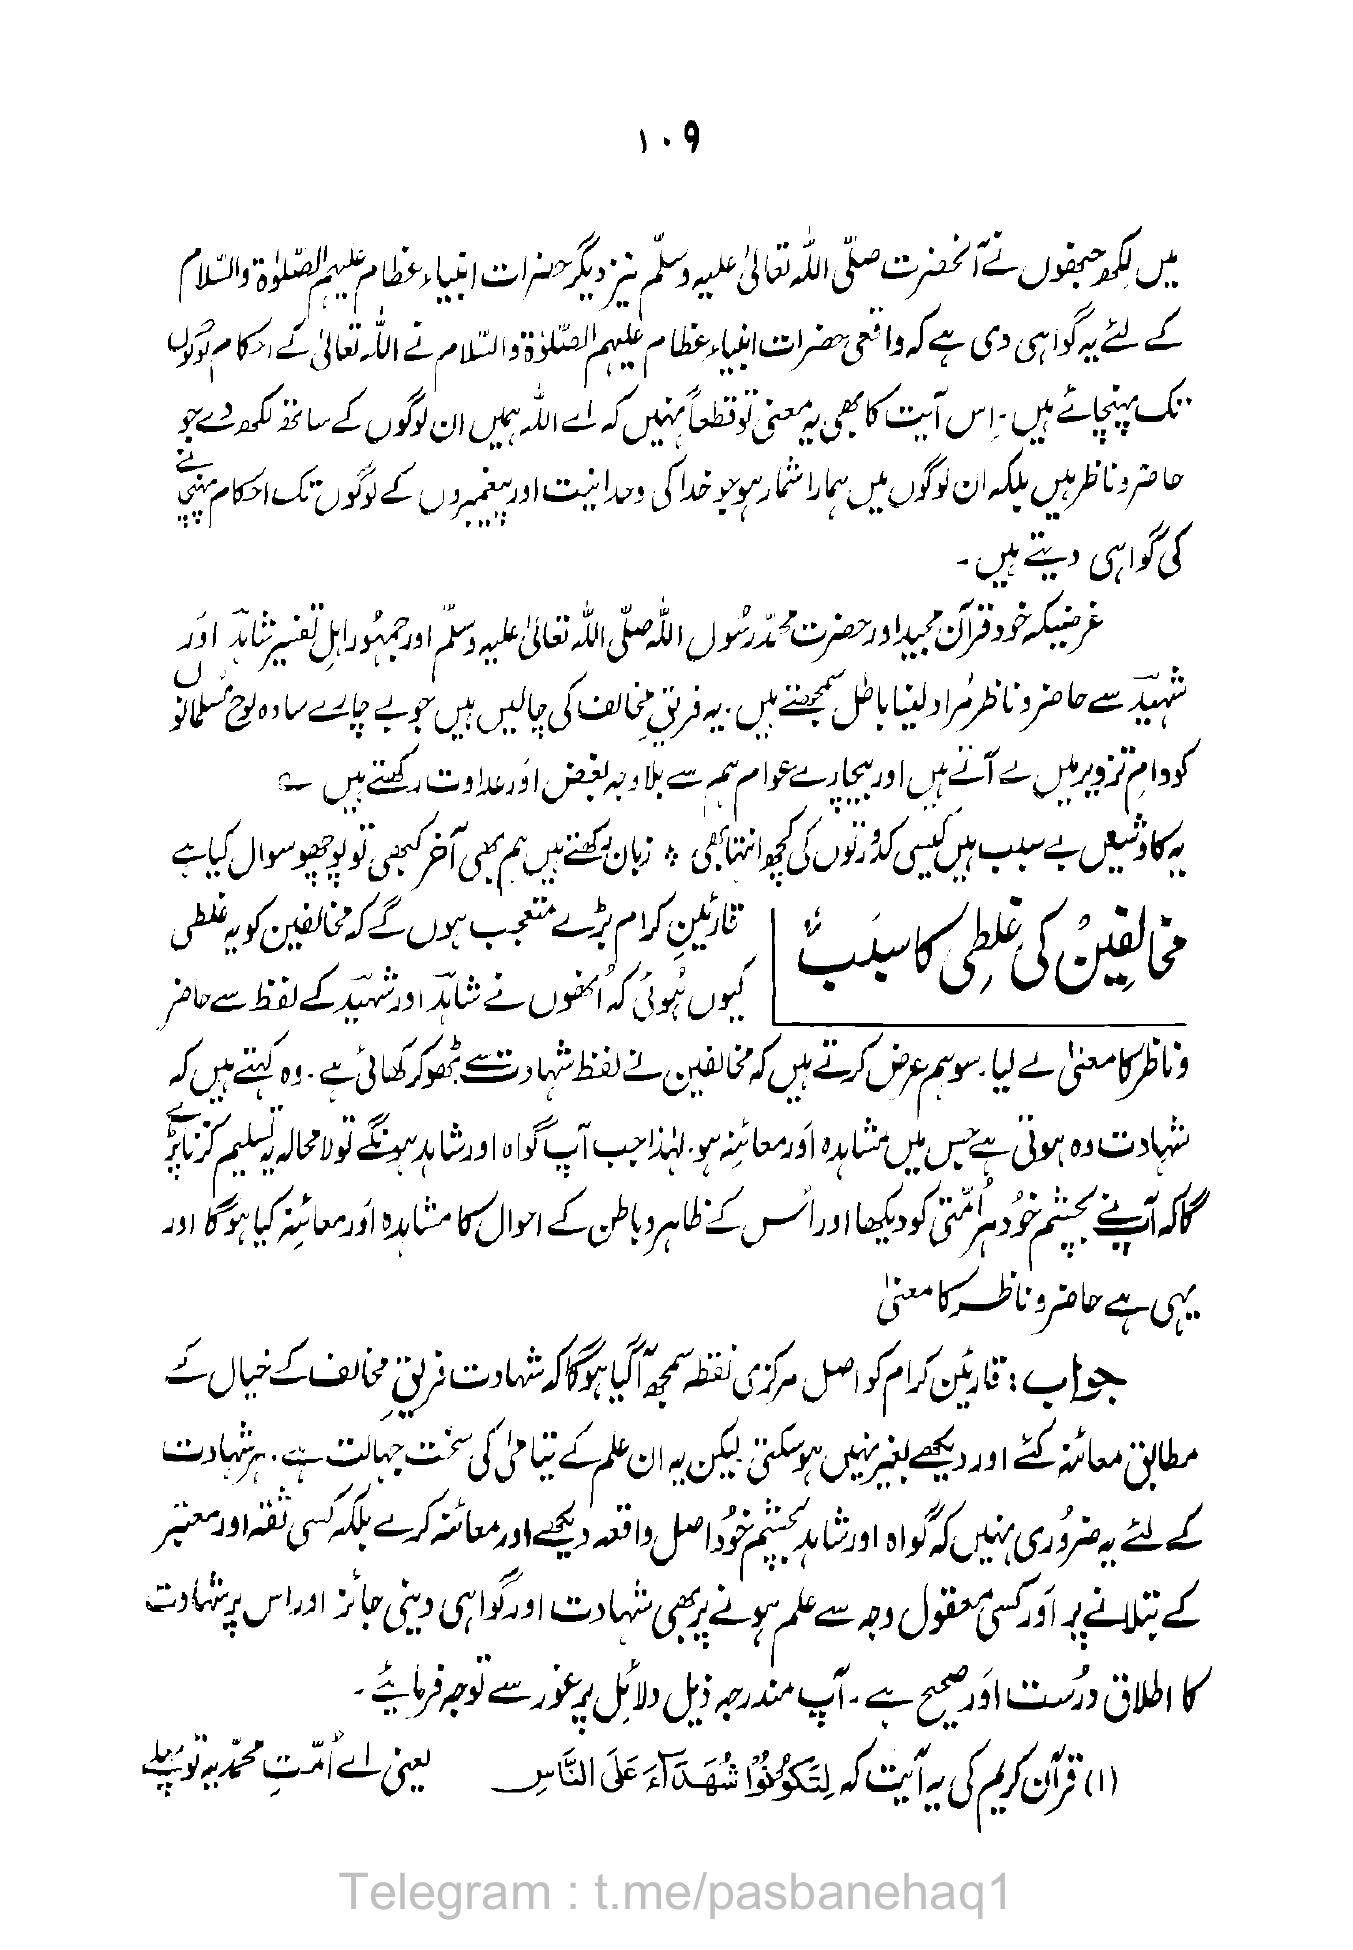 ۱۰۹
میں لکھ جنھوں نے آنحضرت صلّی اللہ تعالیٰ علیہ وسلّم نیز دیگر حضرات انبیاء عظام علیہم الصّلوٰۃ والسّلام
کے لئے یہ گواہی دی ہے کہ واقعی حضرات انبیاء عظام علیہم الصّلوٰۃ والسّلام نے اللہ تعالیٰ کے احکام لوگوں
تک پہنچائے ہیں۔ اِس آیت کا بھی یہ معنی تو قطعاً نہیں کہ اے اللہ ہمیں ان لوگوں کے ساتھ لکھ دے جو
حاضر و ناظر ہیں بلکہ ان لوگوں میں ہمارا شمار ہو جو خدا کی وحدانیت اور پیغمبروں کے لوگوں تک احکام پہنچانے
کی گواہی دیتے ہیں۔
غرضیکہ خود قرآن مجید اور حضرت محمّد رسُول اللہ صلّی اللہ تعالیٰ علیہ وسلّم اور جمہُور اہلِ تفسیر شاہدؔ اور
شہیدؔ سے حاضر و ناظر مُراد لینا باطل سمجھتے ہیں۔ یہ فریقِ مخالف کی چالیں ہیں جو بے چارے سادہ لوح مُسلمانوں
کو دامِ تزویر میں لے آتے ہیں اور بیچارے عوام ہم سے بلا وجہ بغض اَور عداوت رکھتے ہیں ؎
یہ کاوشیں بے سبب ہیں کیسی کدُورتوں کی کچھ انتہا بھی ٭ زبان رکھتے ہیں ہم بھی آخر کبھی تو پوچھو سوال کیا ہے
مخالفینؔ کی غلطِی کا سبَبْ قارئینِ کرام بڑے متعجب ہوں گے کہ مخالفین کو یہ غلطی
کیوں ہُوئی کہ اُنھوں نے شاہدؔ اور شہیدؔ کے لفظ سے حاضر
و ناظر کا معنیٰ لے لیا۔ سو ہم عرض کرتے ہیں کہ مخالفین نے لفظ شہادت سے ٹھوکر کھائی ہے۔ وہ کہتے ہیں کہ
شہادت وہ ہوتی ہے جس میں مشاہدہ اَور معائنہ ہو۔ لہٰذا جب آپ گواہ اور شاہد ہونگے تو لامحالہ یہ تسلیم کرنا پڑے
گا کہ آپ نے بچشمِ خُود ہر اُمّتی کو دیکھا اور اُس کے ظاہر و باطن کے احوال کا مشاہدہ اَور معائنہ کیا ہو گا اور
یہی ہے حاضر و ناظر کا معنیٰ
جواب: قارئین کرام کو اصل مرکزی نقطہ سمجھ آ گیا ہو گا کہ شہادت فریقِ مخالف کے خیال کے
مطابق معائنہ کئے اور دیکھے بغیر نہیں ہو سکتی لیکن یہ ان علم کے یتامیٰ کی سخت جہالت ہے۔ ہر شہادت
کے لئے یہ ضرُوری نہیں کہ گواہ اور شاہد بچشمِ خُود اصل واقعہ دیکھے اور معائنہ کرے بلکہ کسی ثقہ اور معتبر
کے بتلانے پر اَور کسی معقول وجہ سے علم ہونے پر بھی شہادت اور گواہی دینی جائز اور اس پر شہادت
کا اطلاق درُست اَور صحیح ہے۔ آپ مندرجہ ذیل دلائل پر غور سے توجہ فرمایئے۔
(۱) قرآن کریم کی یہ آیت کہ لِتَکُوْنُوْا شُهَدَآءَ عَلَى النَّاسِ یعنی اے اُمّتِ محمّدیہ تو پہلے
Telegram : t.me/pasbanehaq1